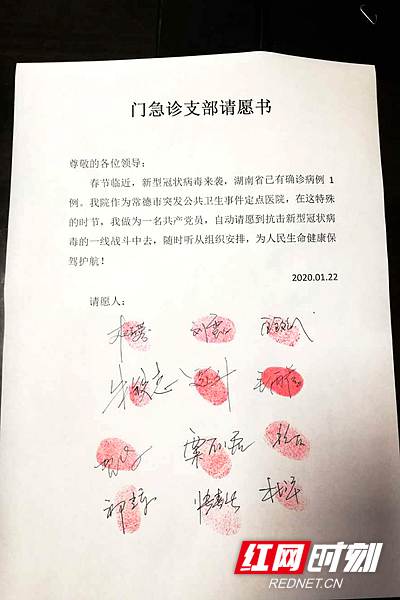 门急诊支部请愿书
尊敬的各位领导：
春节临近，新型冠状病毒来袭，湖南省已有确诊病例 1
例。我院作为常德市突发公共卫生事件定点医院，在这特殊
的时节，我做为一名共产党员，自动请愿到抗击新型冠状病
毒的一线战斗中去，随时听从组织安排，为人民生命健康保
驾护航！
2020.01.22
请愿人：
红网时刻
REDNET.CN